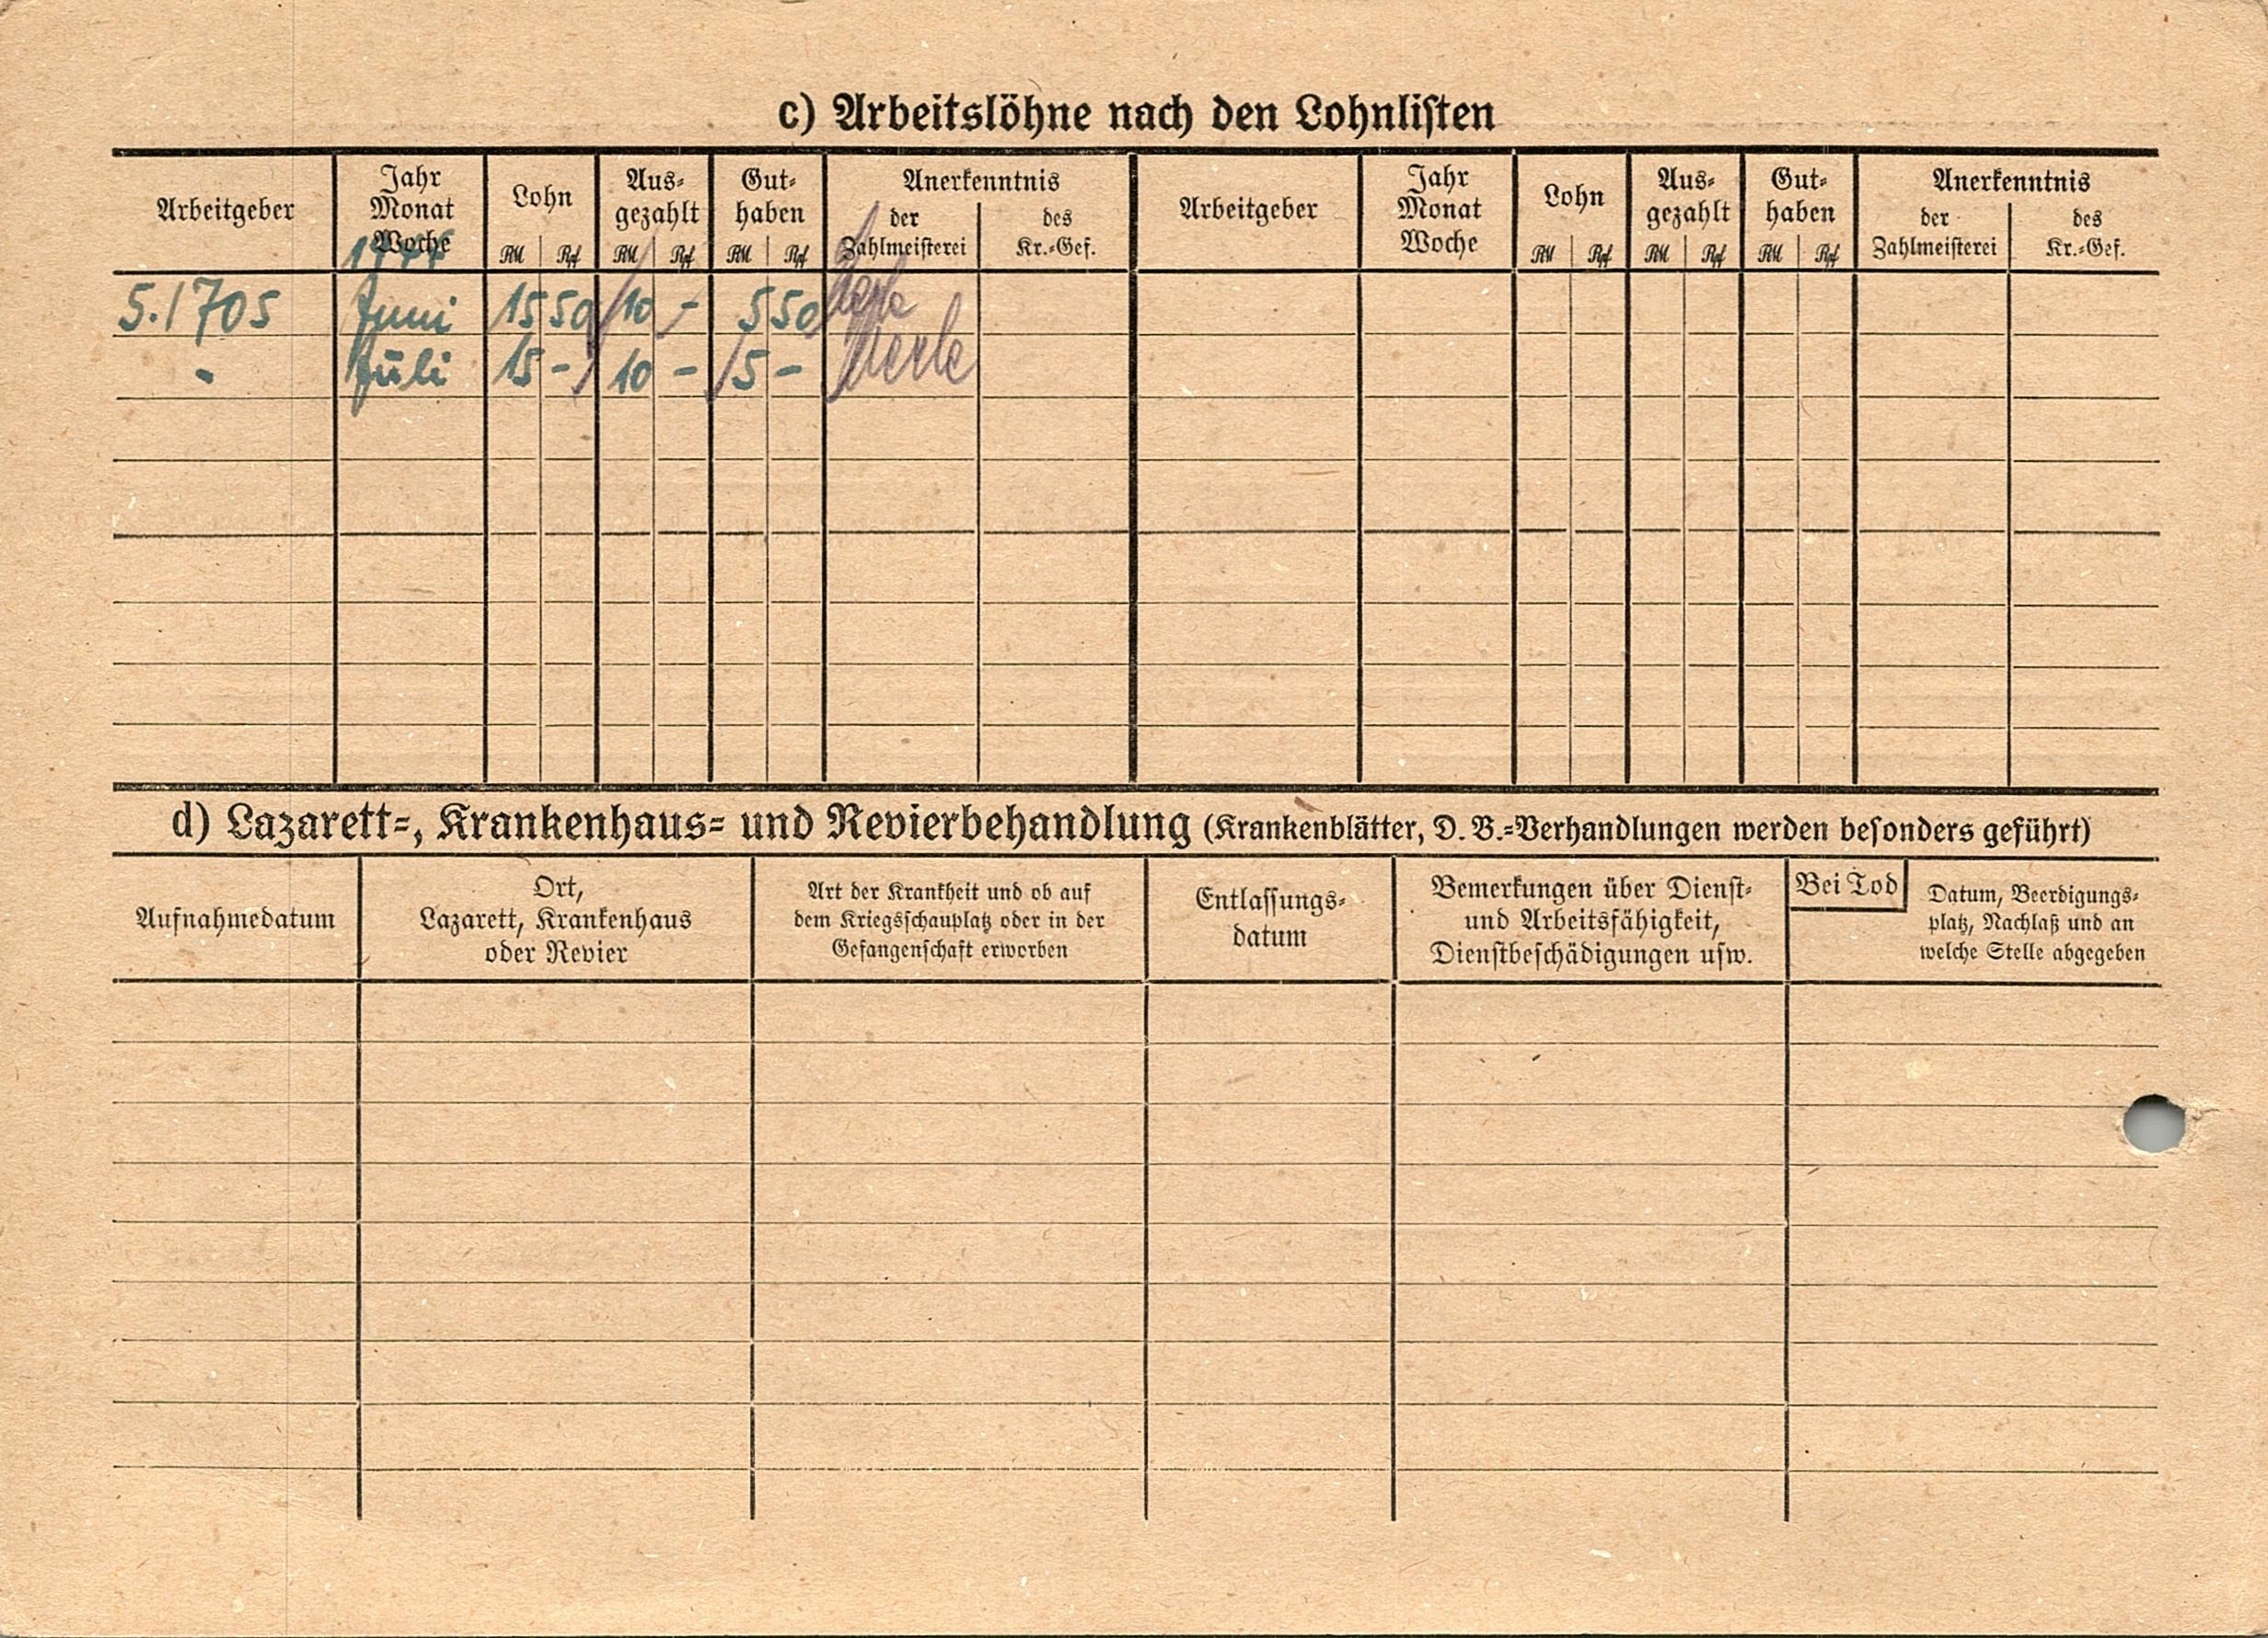 c) Arbeitslöhne nach den Lohnlisten
Arbeitgeber
Jahr
Monat
Woche
Lohn
RM Rpf
Aus-
gezahlt
RM Rpf
Gut-
haben
RM Rpf
Anerkenntnis
der
Zahlmeisterei
des
Kr.-Gef.
Arbeitgeber
Jahr
Monat
Woche
Lohn
RM Rpf
Aus-
gezahlt
RM Rpf
Gut-
haben
RM Rpf
Anerkenntnis
der
Zahlmeisterei
des
Kr.-Gef.
1944
5.1705 Juni 15 50 10 - 5 50
- Juli 15 - 10 - 5 -
d) Lazarett-, Krankenhaus- und Revierbehandlung (Krankenblätter, D. B.-Verhandlungen werden besonders geführt)
Aufnahmedatum
Ort,
Lazarett, Krankenhaus
oder Revier
Art der Krankheit und ob auf
dem Kriegsschauplatz oder in der
Gefangenschaft erworben
Entlassungs-
datum
Bemerkungen über Dienst-
und Arbeitsfähigkeit,
Dienstbeschädigungen usw.
Bei Tod
Datum, Beerdigungs-
platz, Nachlaß und an
welche Stelle abgegeben